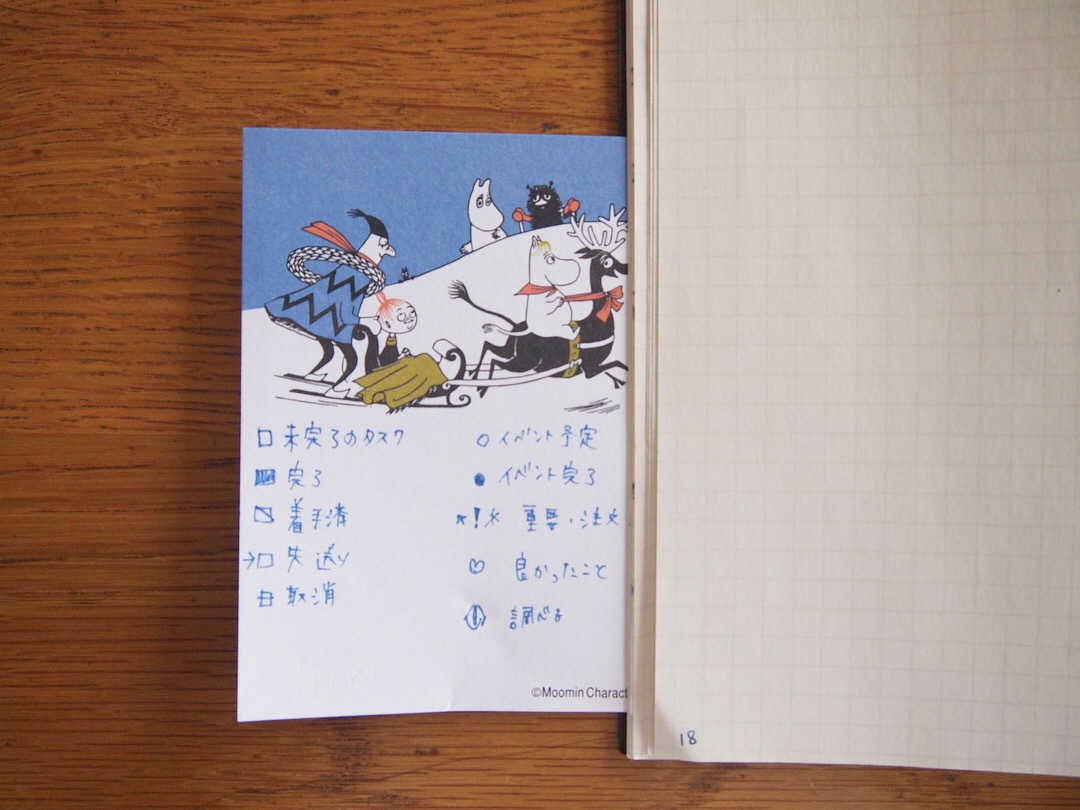 □ 未完了のタスク
■ 完了
着手済
→□ 先送り
取消
○ イベント予定
● イベント完了
*!* 重要・注
♡ 良かったこと
調べる
©Moomin Charact
18